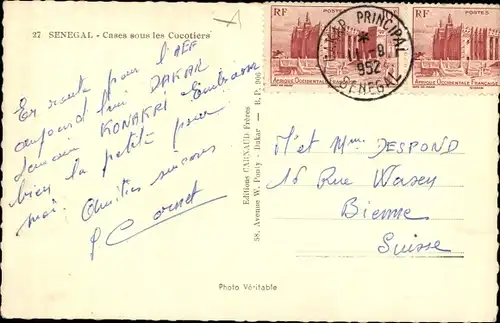 27 SENEGAL - Cases sous les Cocotiers
En route pour l'AEF
aujourd'hui DAKAR
demain KONAKRI - Embrasse
bien la petite pour
moi.
Cornet
Editions CARNAUD Frères
58, Avenue W. Ponty - Dakar - B. P. 906
Photo Véritable
RF POSTES
AFRIQUE OCCIDENTALE FRANÇAISE
RF POSTES
AFRIQUE OCCIDENTALE FRANÇAISE
DAKAR PRINCIPAL
952
SENEGAL
M et Mme DESPOND
16 Rue Wasen
Bienne
Suisse